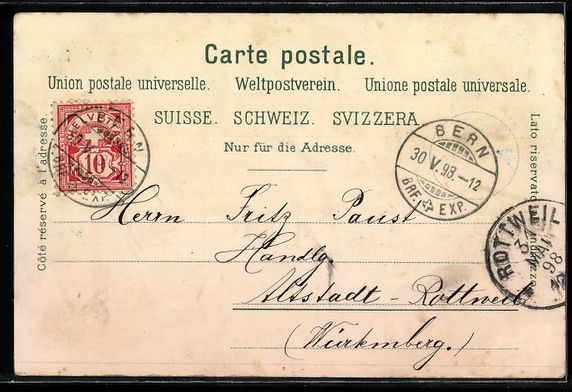 Carte postale.
Union postale universelle. Weltpostverein. Unione postale universale.
SUISSE. SCHWEIZ. SVIZZERA.
Nur für die Adresse.
Côté réservé à l'adresse.
HELVETIA
10
BERN
30 V.98.-12
BRF. EXP.
Herrn Fritz Paust
Handlg.
Altstadt-Rottweil
(Württemberg.)
Lato riservato
ROTTWEIL
98